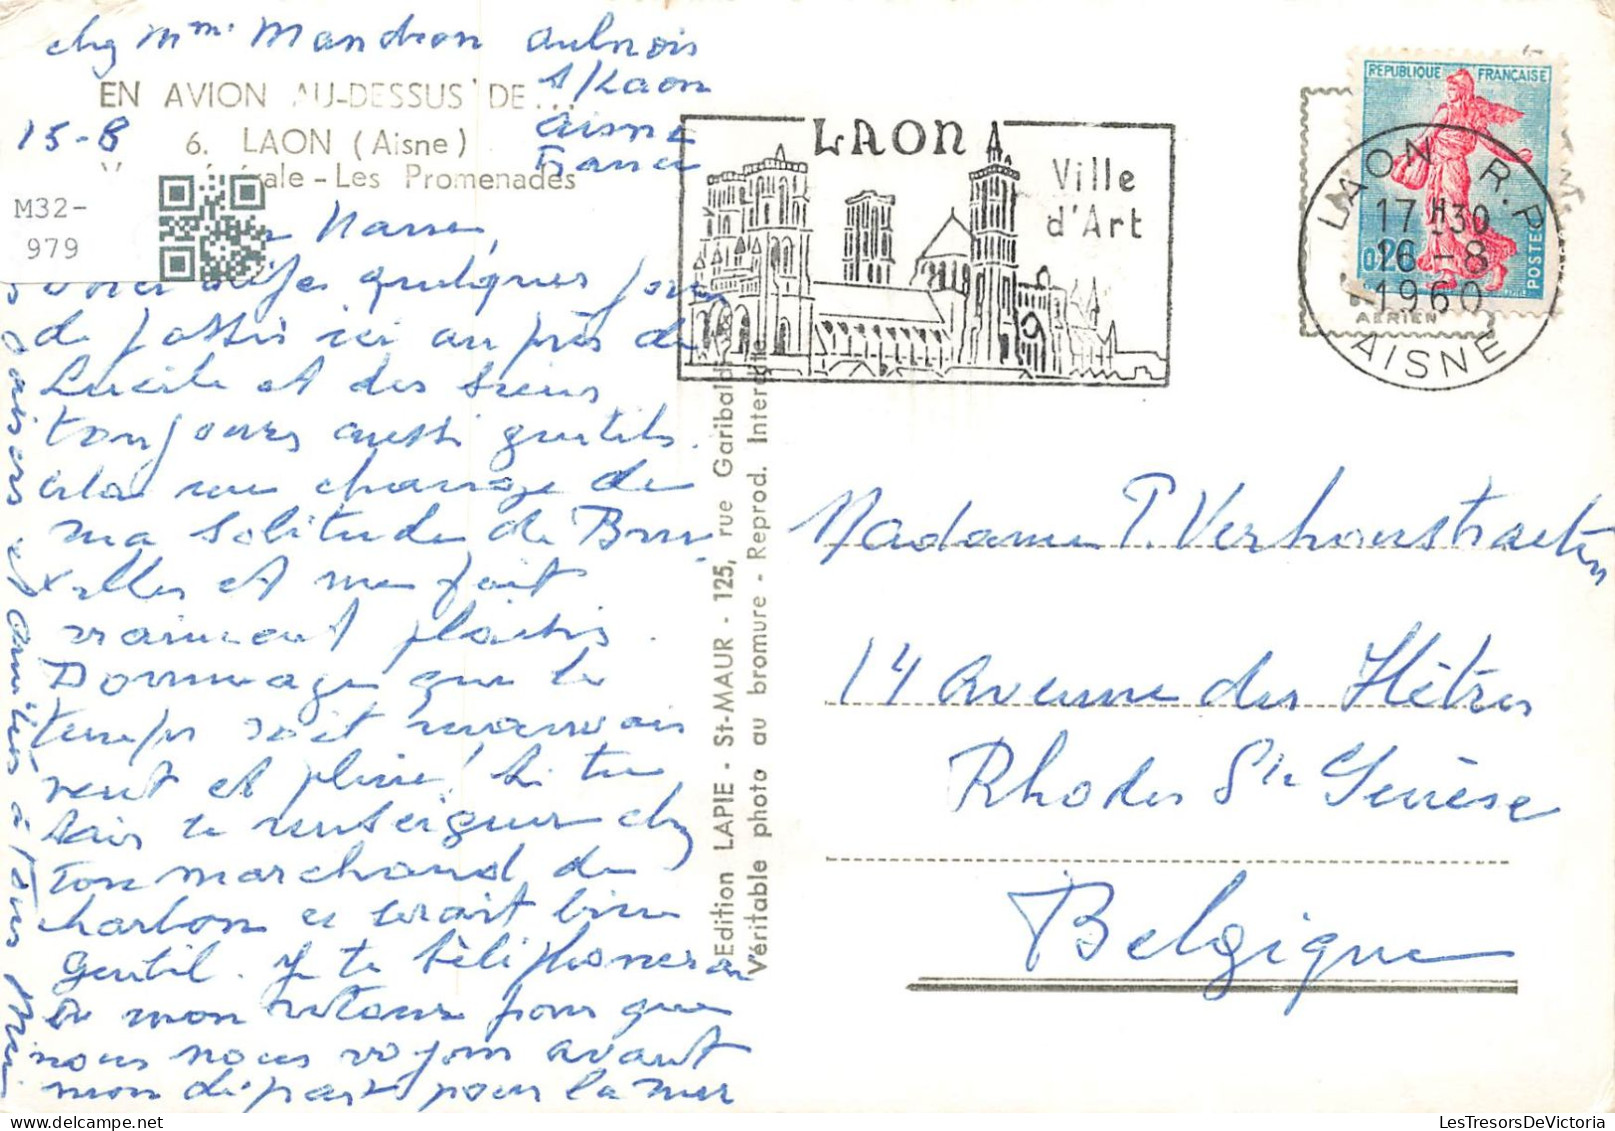 chez Mme Mandron Aulnois
s/Laon
Aisne
France
EN AVION AU-DESSUS DE...
15-8
6. LAON (Aisne)
érale - Les Promenades
M32-
979
quelques jours
de passés ici au près de
Lucile et des siens
toujours aussi gentils.
cela me change de
ma solitude de Bru-
xelles et me fait
vraiment plaisir.
Dommage que le
temps soit mauvais
vent et pluie! Si tu
vais te renseigner chez
ton marchand de
charbon ce serait bien
gentil. Je te téléphonerai
à mon retour pour que
nous nous voyons avant
mon départ pour la mer
baisers et amitiés à tous
Edition LAPIE - St-MAUR - 125, rue Garibaldi
Véritable photo au bromure - Reprod. Interdite
LAON
Ville
d'Art
REPUBLIQUE FRANÇAISE
0,20
POSTES
LAON R.P
17H30
16-8
1960
AISNE
AERIEN
Madame P. Verhoustraeten
14 Avenue des Hêtres
Rhodes St Genèse
Belgique
LesTresorsDeVictoria.com